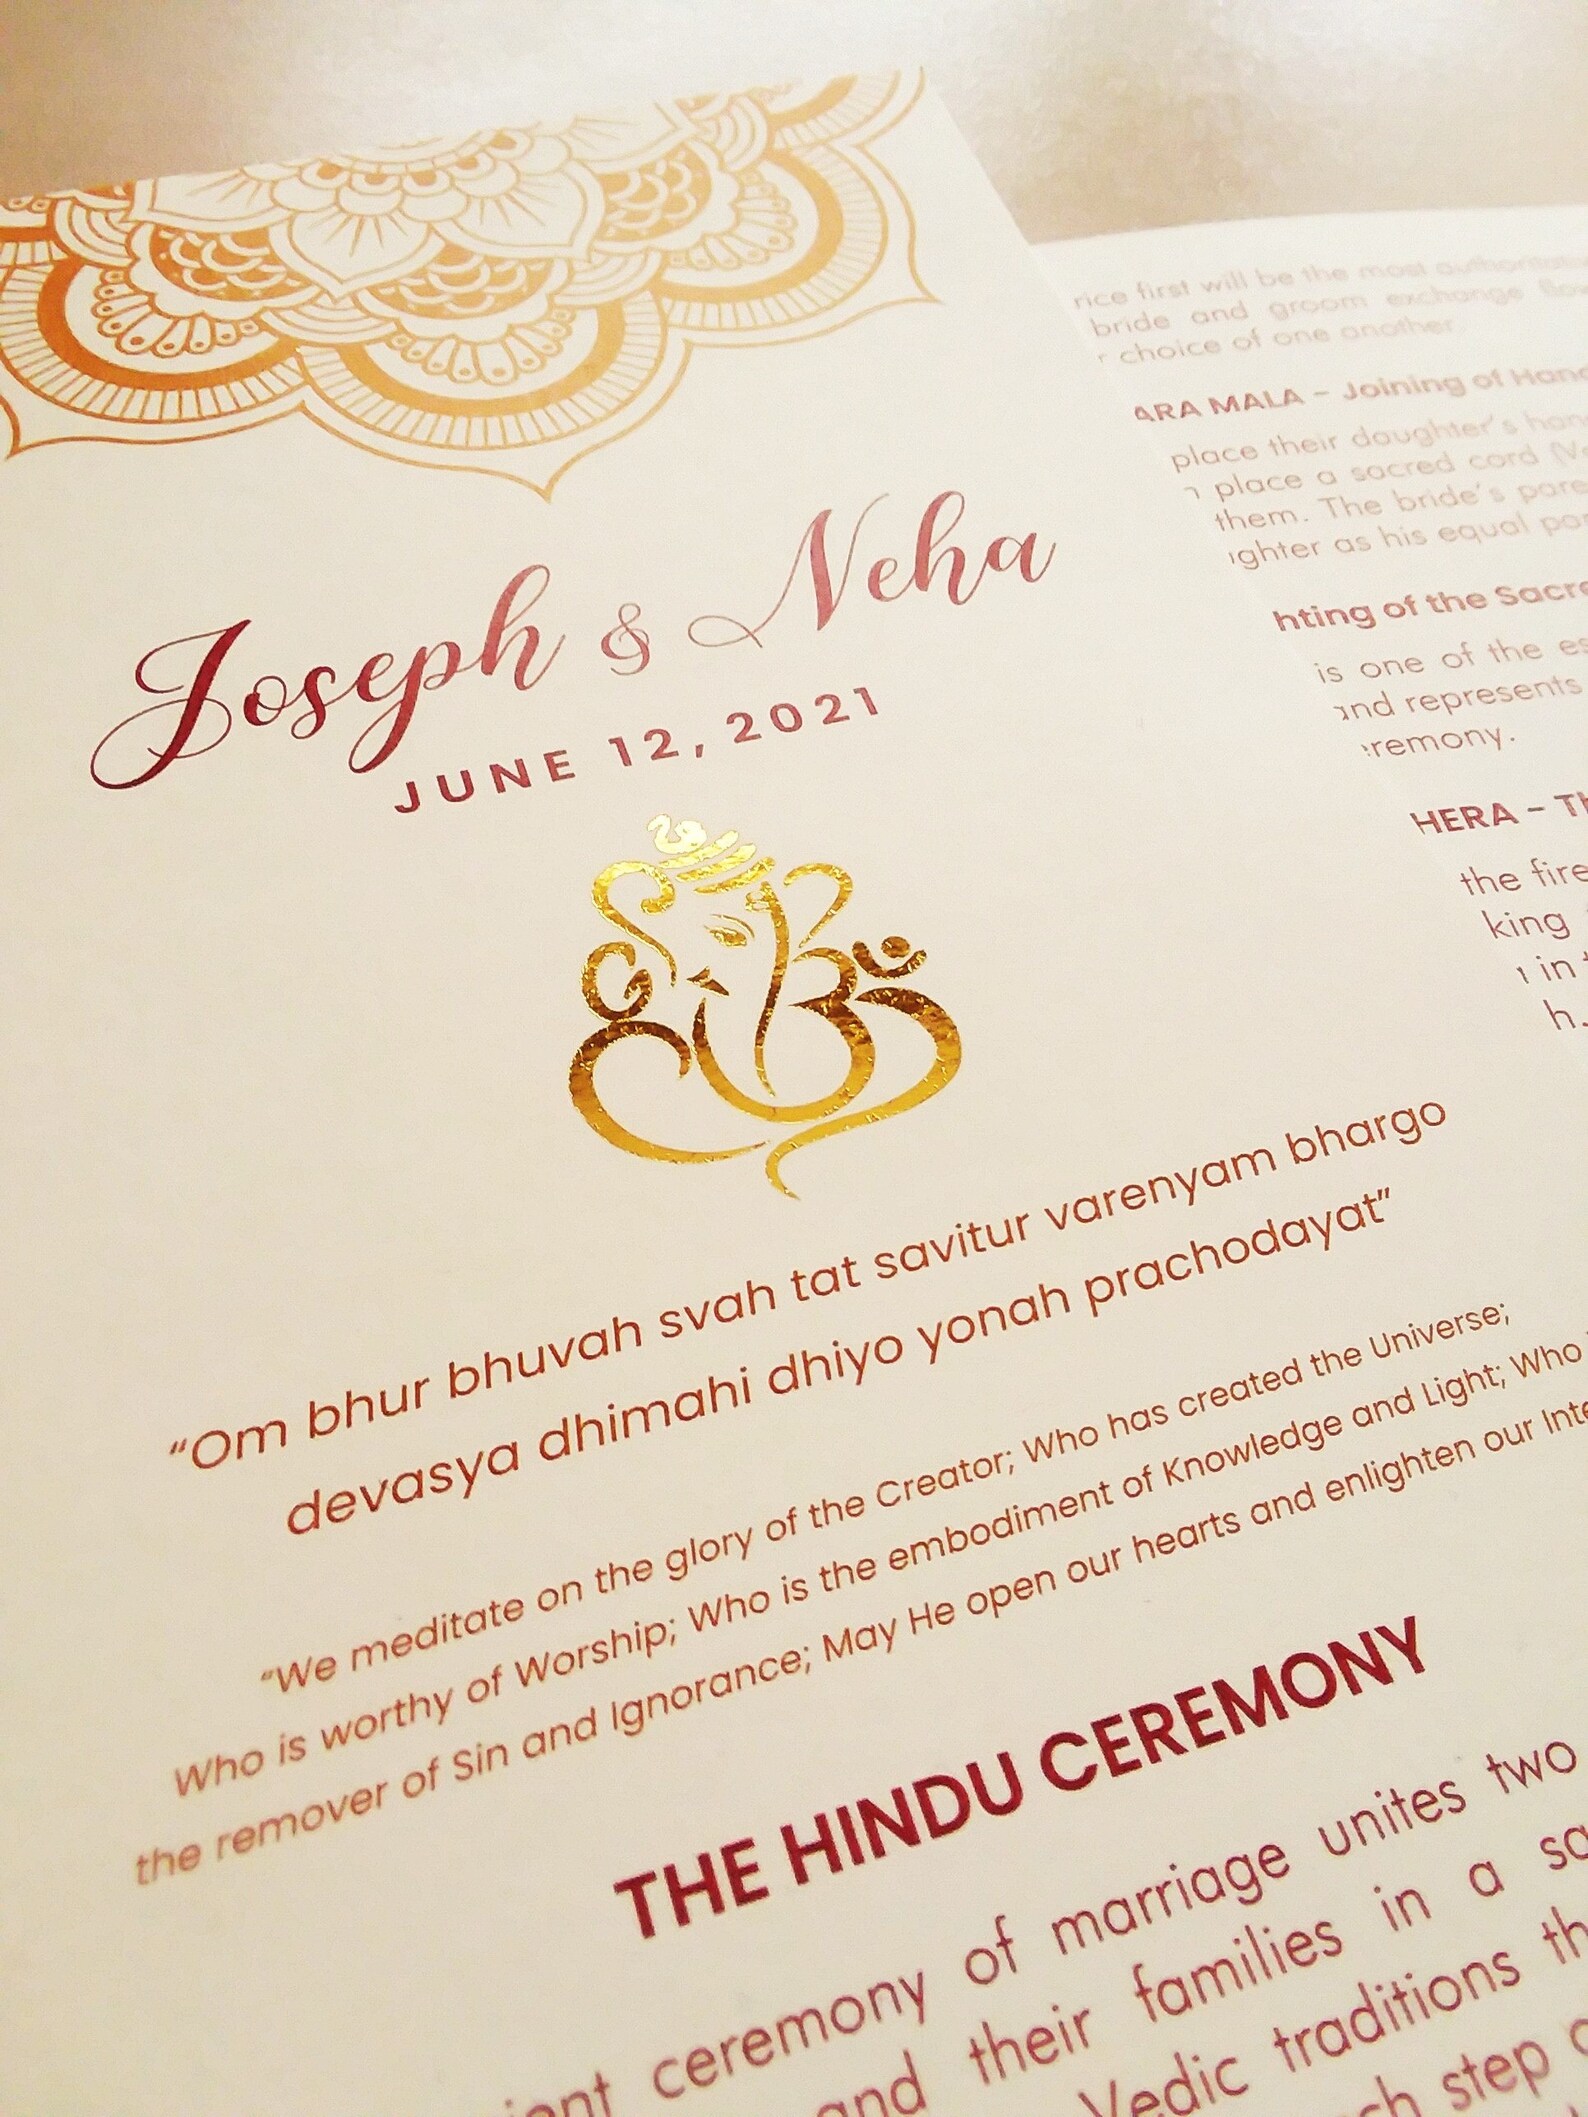 Joseph & Neha
JUNE 12, 2021
"Om bhur bhuvah svah tat savitur varenyam bhargo
devasya dhimahi dhiyo yonah prachodayat"
"We meditate on the glory of the Creator; Who has created the Universe;
Who is worthy of Worship; Who is the embodiment of Knowledge and Light; Who
the remover of Sin and Ignorance; May He open our hearts and enlighten our
THE HINDU CEREMONY
ceremony of marriage unites two
and their families in a
Vedic traditions
step
first will be the most
bride and groom exchange
choice of one another
MALA – Joining of
place their daughter's
place a sacred cord
them. The bride's
as his equal
of the
is one of the
represents
HERA –
the
in